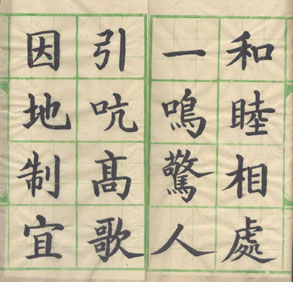 和睦相處
一鳴驚人
引吭髙歌
因地制宜